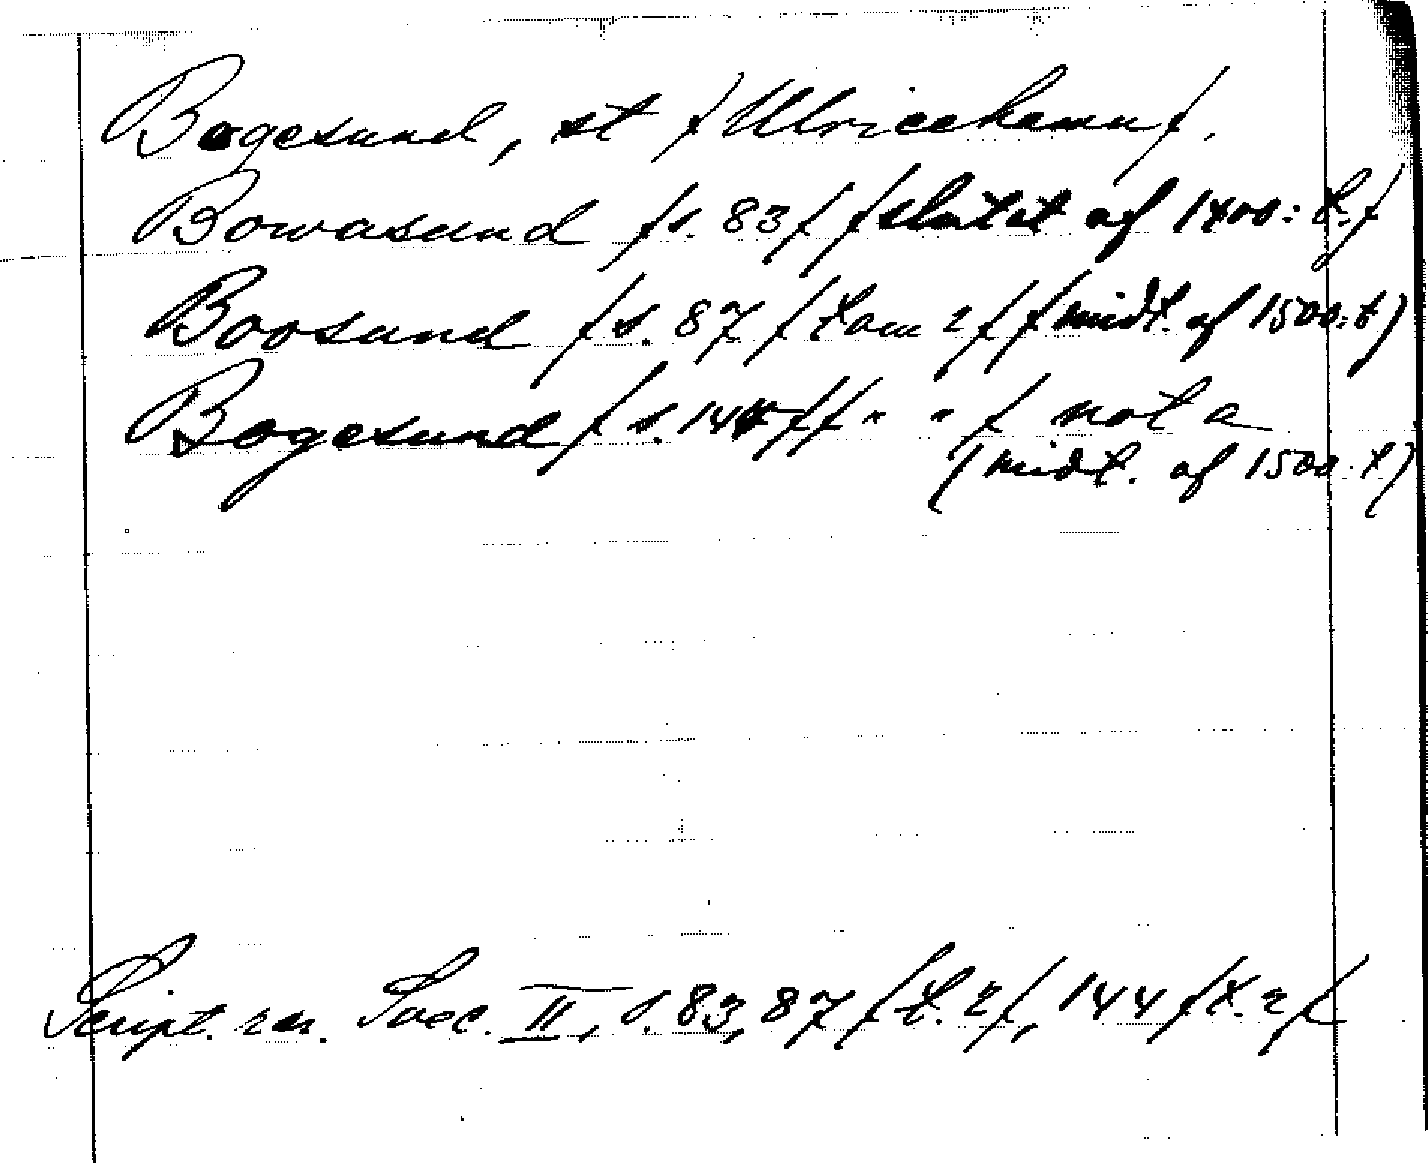 Bogesund, st /Ulricehamn/.
Bowasund /s. 83/ /slutet af 1400:t./
Boosund /s. 87 /tom 2/ /midt. af 1500:t)
Bogesund /s. 144/ /" "/ not a
(midt. af 1500:t)
Script. rer. Svec. II, s. 83, 87 /t. 2/, 144 /t. 2/